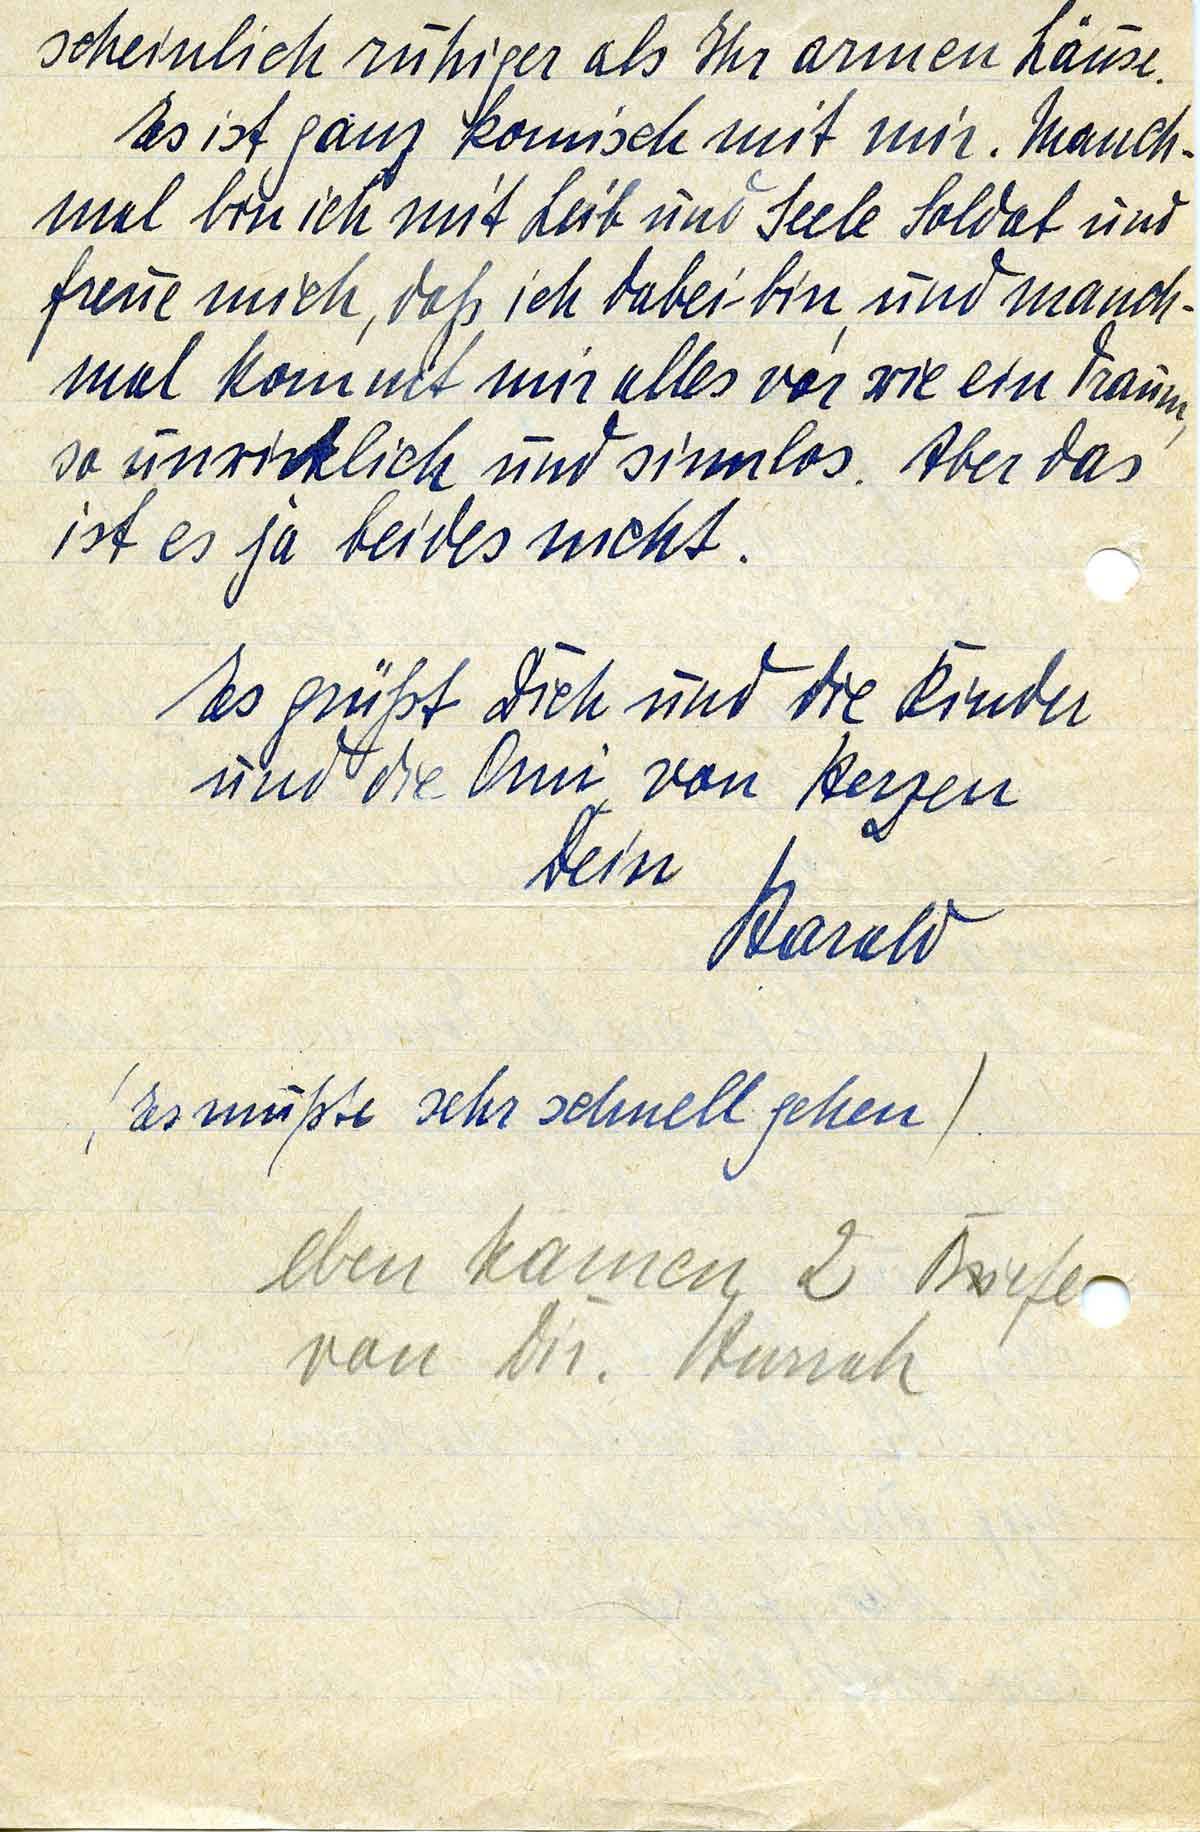 scheinlich ruhiger als Ihr armen Läuse.
Es ist ganz komisch mit mir. Manch-
mal bin ich mit Leib und Seele Soldat und
freue mich, daß ich dabei bin und manch-
mal kommt mir alles vor wie ein Traum,
so unwirklich und sinnlos. Aber das
ist es ja beides nicht.
Es grüßt Dich und die Kinder
und die Omi von Herzen
Dein
Harald
(Es mußte sehr schnell gehen)
eben kamen 2 Briefe
von Dir. Hurrah